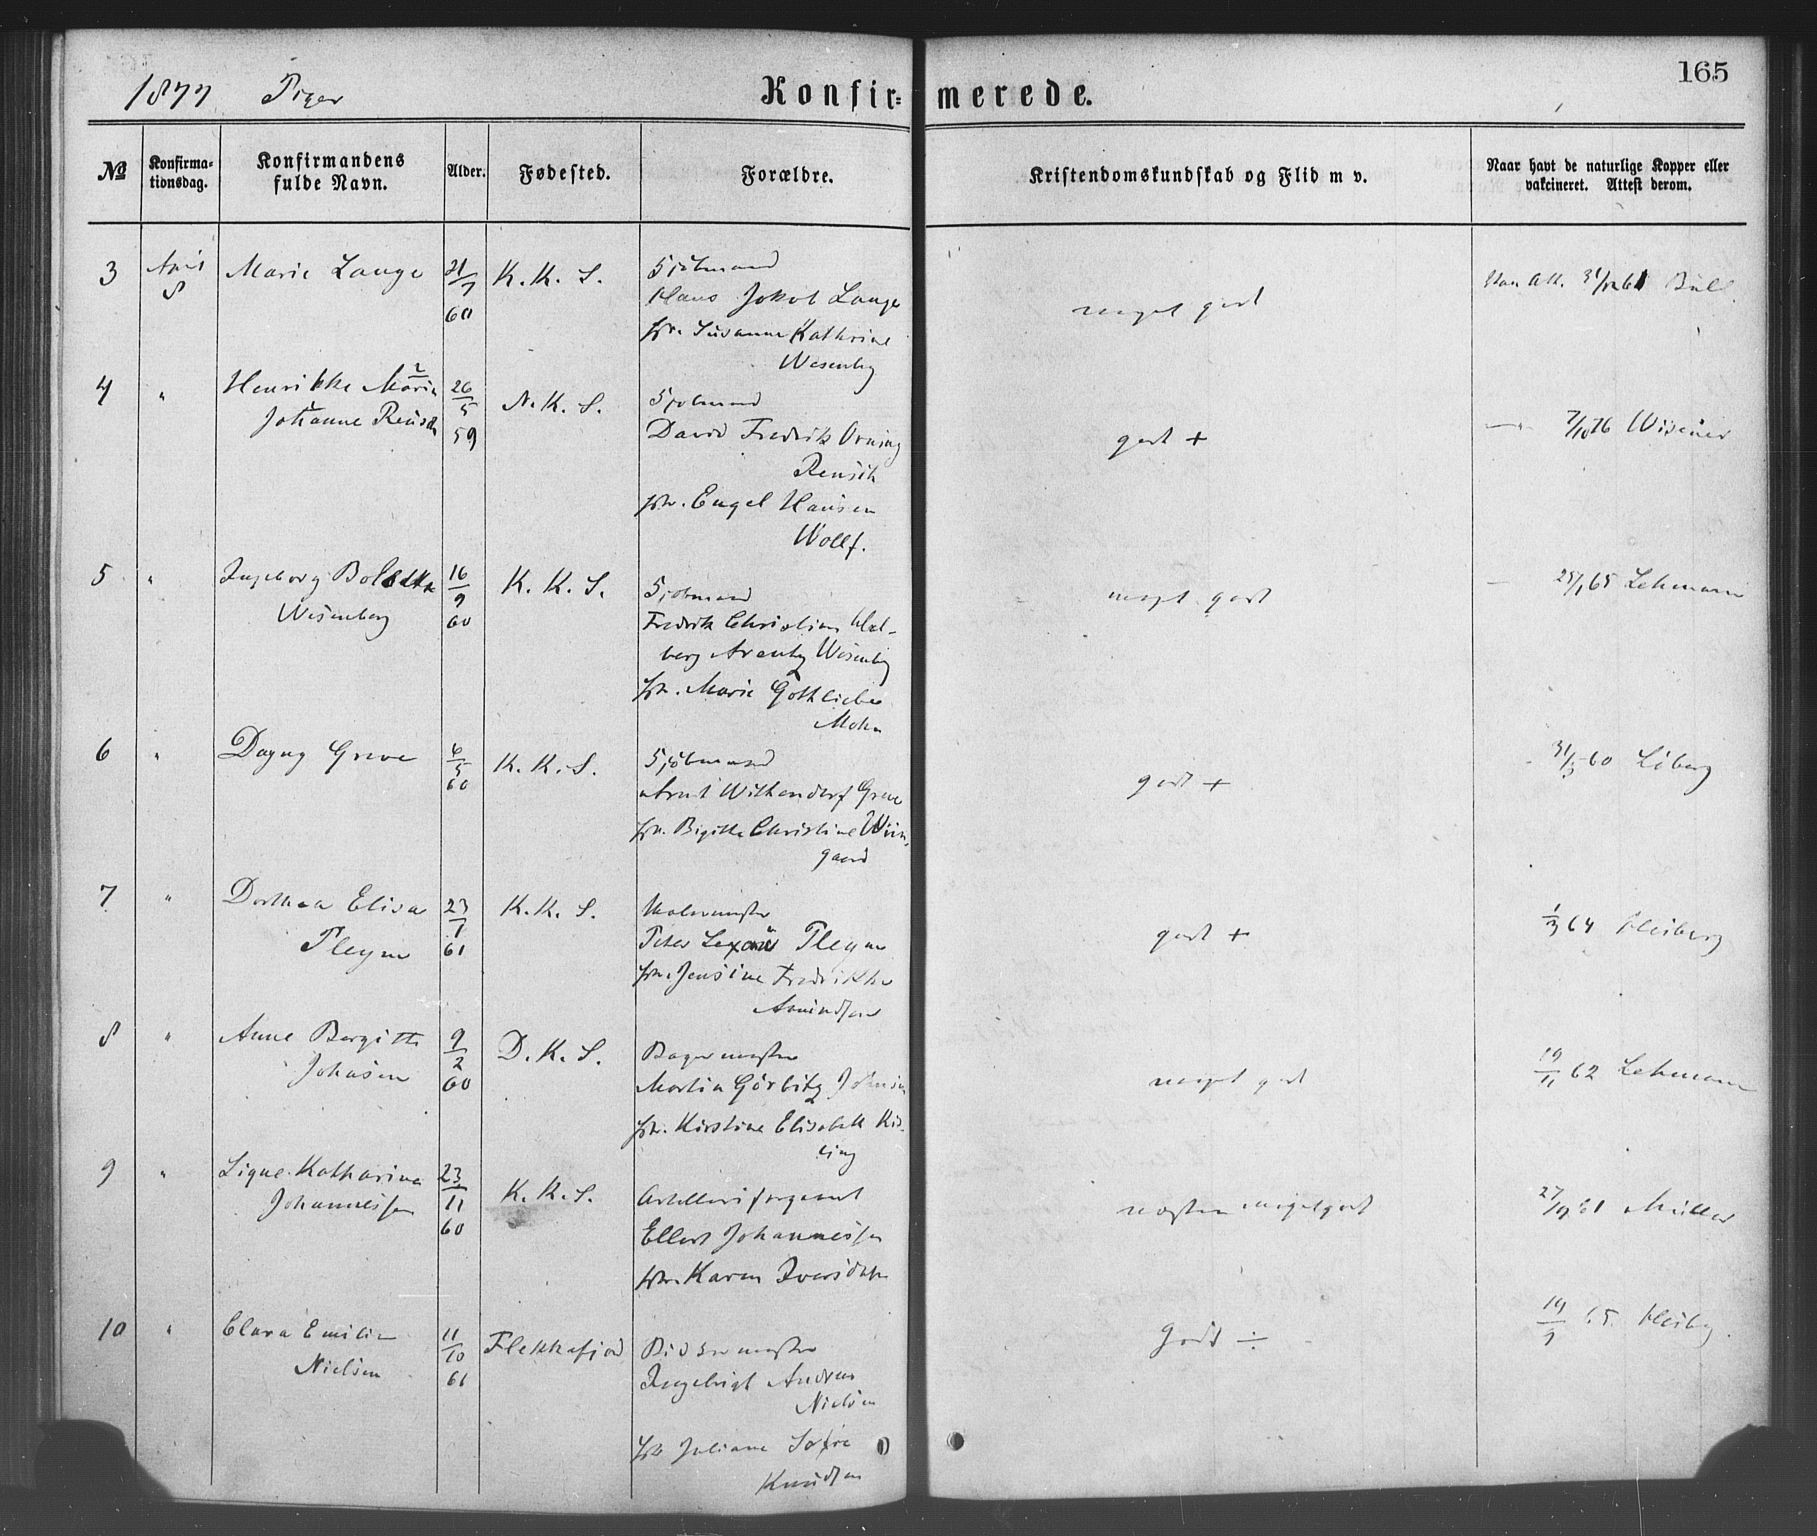 165
1877 Piger
Konfir= merede.
№ Konfirma= tionsdag. Konfirmandens fulde Navn. Alder. Fødested. Forældre. Kristendomskundskab og Flid m v. Naar havt de naturlige Kopper eller vakcineret. Attest derom.
3 April 8 Marie Lange 21/7 60 K. K. S. Sjötmand meget godt 31/12 61 Büll
Hans Jakob Lange
Susanne Kathrine
Wesenberg
4 " Henrikke Marie 26/5 59 N. K. S. Sjötmand godt + 7/10 76 Wisener
Johanne Reusch David Fredrik Orning
Reusch
Engel Hansen
Wollf.
5 " Ingeborg Bolette 16/9 60 K. K. S. Sjötmand meget godt 25/1 65 Lehmann
Wesenberg Fredrik Christian Hol-
berg Arentz Wesenberg
Marie Gothliebe
Mohn
6 " Dagny Greve 6/5 60 K. K. S. Sjötmand godt + 31/5 60 Löberg
Arnt Wilkendorf Greve
Birgitte Christine Wiin-
gaard
7 " Dorthea Elisa 23/1 61 K. K. S. Malermester godt + 1/3 64 Heiberg
Pleym Peter Pleym
Jensine Fredrikke
Amundsen
8 " Anne Bergitte 9/2 60 D. K. S. Bagermester meget godt 19/11 62 Lehmann
Johnsen Martin Görbitz Johnsen
Kirstine Elisabeth Kis-
ling
9 " Signe Katharina 23/11 60 K. K. S. Artillerisergeant næsten meget godt 27/9 61 Müller
Johannessen Ellert Johannessen
Karen Iversdatter
10 " Clara Emilie 11/10 61 Flekkefjord godt ÷ 19/9 65 Heiberg.
Nielsen Ingebrigt Andreas
Nielsen
Juliane Sofie
Knudsen